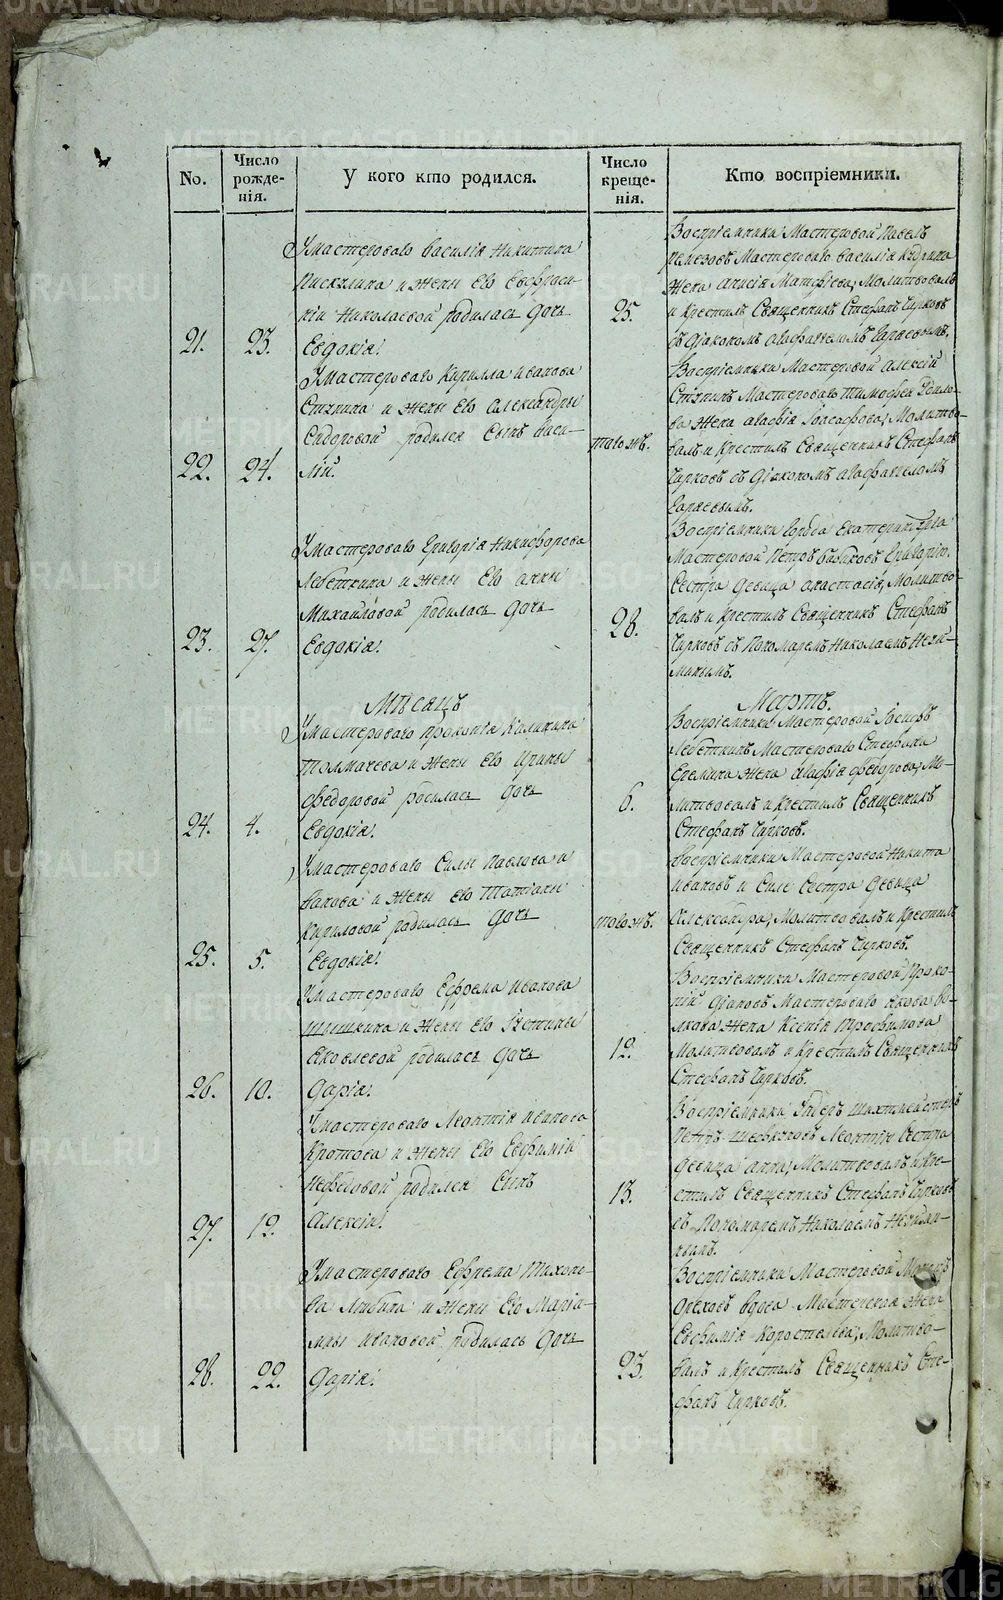 No.
Число рожденія.
У кого кто родился.
Число крещенія.
Кто воспріемники.
21.
23.
Умастероваго василія Никитина
Пискилина и жены Его Евфроси-
ніи Николаевой родилась дочь
Евдокія.
25.
Воспріемники Мастеровой Павелъ
ремезовъ Мастероваго василія
жена анисія Матфѣева, Молитвовалъ
и Крестилъ Священникъ Стефанъ Чирковъ
съ діакономъ
22.
24.
Умастероваго Кирилла иванова
Ступина и жены Его Александры
Сидоровой родился Сынъ васи-
лій.
тогожъ.
Воспріемники Мастеровой алексій
Ступинъ Мастероваго Тимофея
жена агафія Іоасафова, Молитво-
валъ и Крестилъ Священникъ Стефанъ
Чирковъ съ діакономъ
23.
27.
Умастероваго Григорія Никифорова
Лебеткина и жены Его анны
Михайловой родилась дочь
Евдокія.
28.
Воспріемники города Екатеринбурга
Мастеровой Петръ бабиковъ Григорію
Сестра девица анастасія, Молитво-
валъ и Крестилъ Священникъ Стефанъ
Чирковъ съ Пономаремъ Николаемъ
Мѣсяцъ Мартъ.
24.
4.
Умастероваго прокопія Калинина
толмачева и жены Его Ирины
федоровой родилась дочь
Евдокія.
6.
Воспріемники Мастеровой Іосифъ
Лебеткинъ Мастероваго Стефана
Еремина жена агафія федорова, Мо-
литвовалъ и Крестилъ Священникъ
Стефанъ Чирковъ.
25.
5.
Умастероваго Силы Павлова и
ванова и жены Его Татіаны
Кириловой родилась дочь
Евдокія.
тогожъ.
воспріемники Мастеровой Никита
ивановъ и Силе Сестра девица
Александра, Молитвовалъ и Крестилъ
Священникъ Стефанъ Чирковъ.
26.
10.
Умастероваго Ефрема иванова
Шышкина и жены Его Устины
Яковлевой родилась дочь
Дарія.
12.
Воспріемники Мастеровой Проко-
пій діаковъ Мастероваго якова во-
лкова жена Ксенія Трофимова
Молитвовалъ и Крестилъ Священникъ
Стефанъ Чирковъ.
27.
12.
Умастероваго Леонтія иванова
Кротова и жены Его Евфиміи
Нефедовой родился Сынъ
Алексій.
13.
Воспріемники шихтмейстеръ
Петръ Леонтія Сестра
девица анна, Молитвовалъ и Кре-
стилъ Священникъ Стефанъ Чирковъ
съ Пономаремъ Николаемъ
28.
22.
Умастероваго Ефрема Тихоно-
ва Любина и жены Его Марiа-
мны ивановой родилась дочь
Дарія.
23.
Воспріемники Мастеровой
ореховъ вдова Мастерская жена
Евфимія Коростелева, Молитво-
валъ и Крестилъ Священникъ Сте-
фанъ Чирковъ.
METRIKI.GASO-URAL.RU